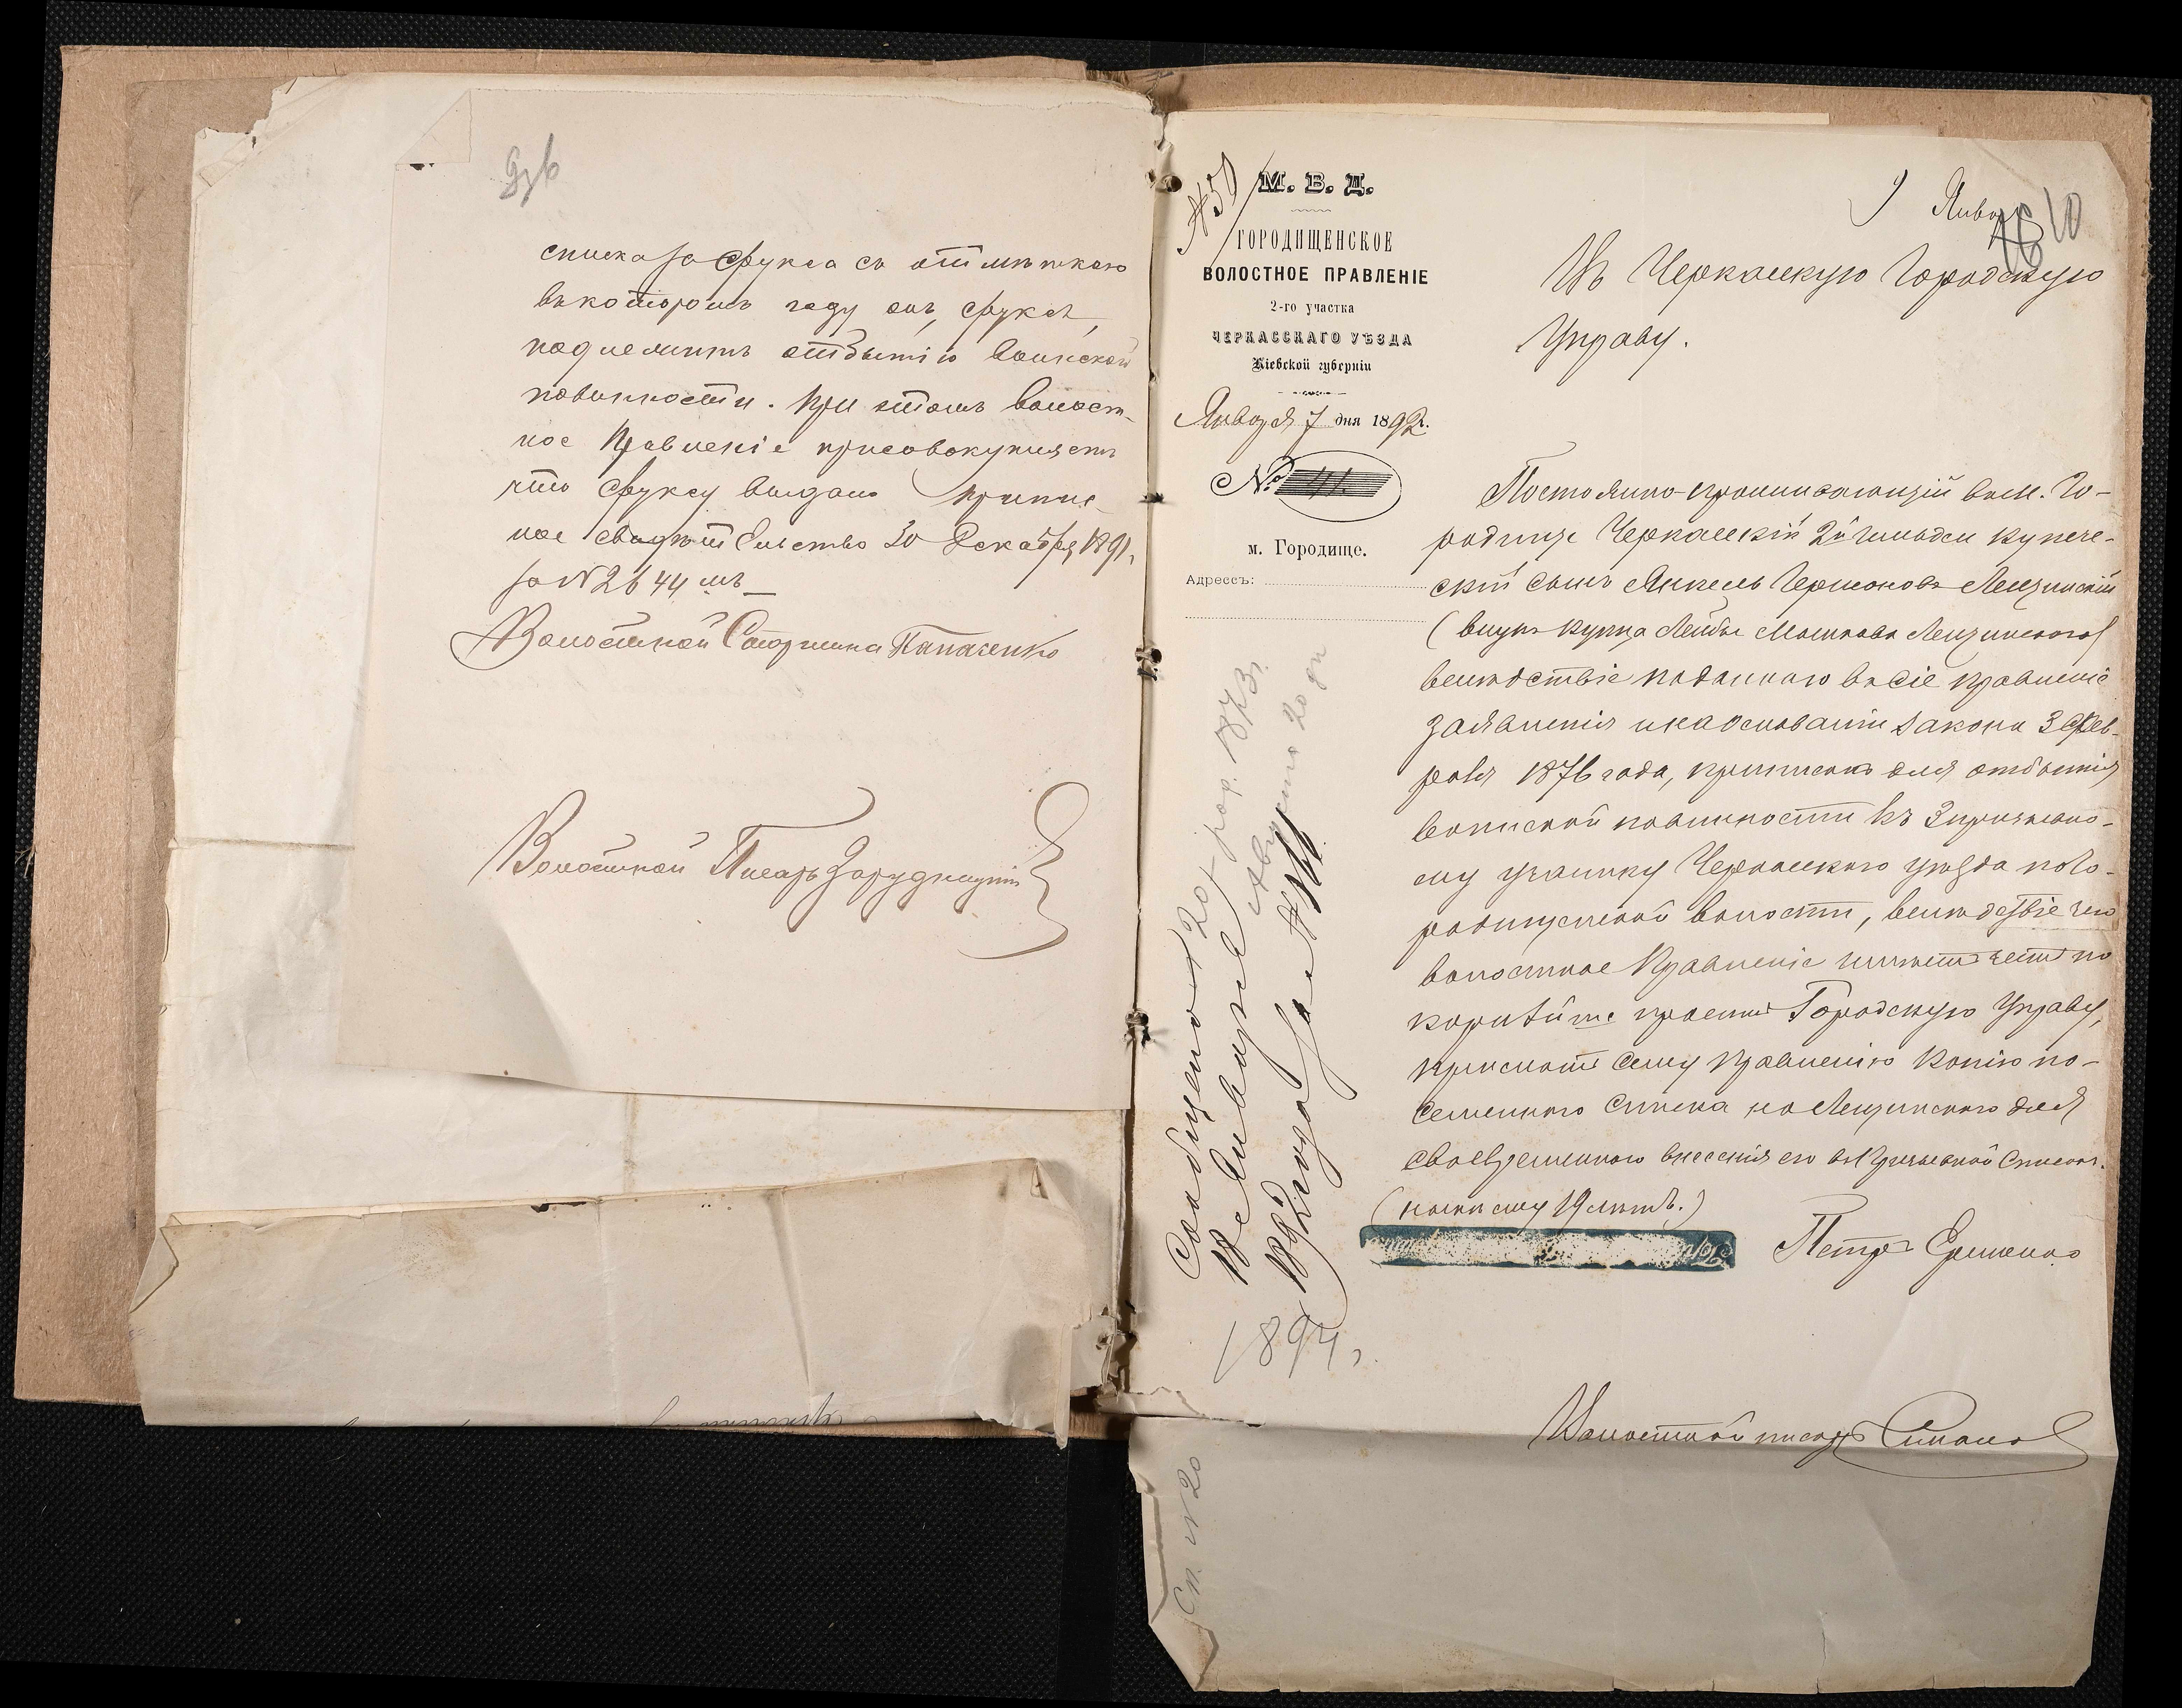 списка за Фукса съ отмѣткою
въ которомъ году онъ, Фуксъ,
подлежитъ отбытію воинской
повинности. При этомъ волост-
ное Правленіе присовокупляетъ
что Фуксу выдано припис-
ное свидѣтельство 30 Декабря 1891 г.
за № 2644 мъ
Волостной Старшина Панасенко
Волостной Писарь
№ 59
М. В. Д.
ГОРОДИЩЕНСКОЕ
ВОЛОСТНОЕ ПРАВЛЕНІЕ
2-го участка
ЧЕРКАССКАГО УѢЗДА
Кіевской губерніи
Января 7 дня 1892 г.
№ 41
м. Городище.
Адрессъ:
9 Янва
16 10
Въ Черкасскую Городскую
Управу.
Постоянно-проживающій въ м. Го-
родище Черкасскій 2й гильдіи купече-
скій сынъ Янкель Гершоновъ Лещинскій
(внукъ купца Лейбы Мошкова Лещинскаго)
вслѣдствіе поданнаго въ сіе правленіе
заявленія и на основаніи закона 3 Фев-
раля 1876 года, приписанъ для отбытія
воинской повинности къ 3 призывно-
му участку Черкасскаго уѣзда по Го-
родищенской волости, вслѣдствіе чего
волостное Правленіе имѣетъ честь по
корнѣйше просить Городскую Управу,
прислать сему Правленію копію по-
семейнаго списка на Лещинскаго для
своевременнаго внесенія его въ призывной списокъ.
(нынѣ ему 19 лѣтъ.)
Петръ Еременко
Волостной писарь
Сообщено
18 Января
1892 года за №
20 г. рор. 1873 г.
Августа 20 дн
1894 г.
Сп. № 20